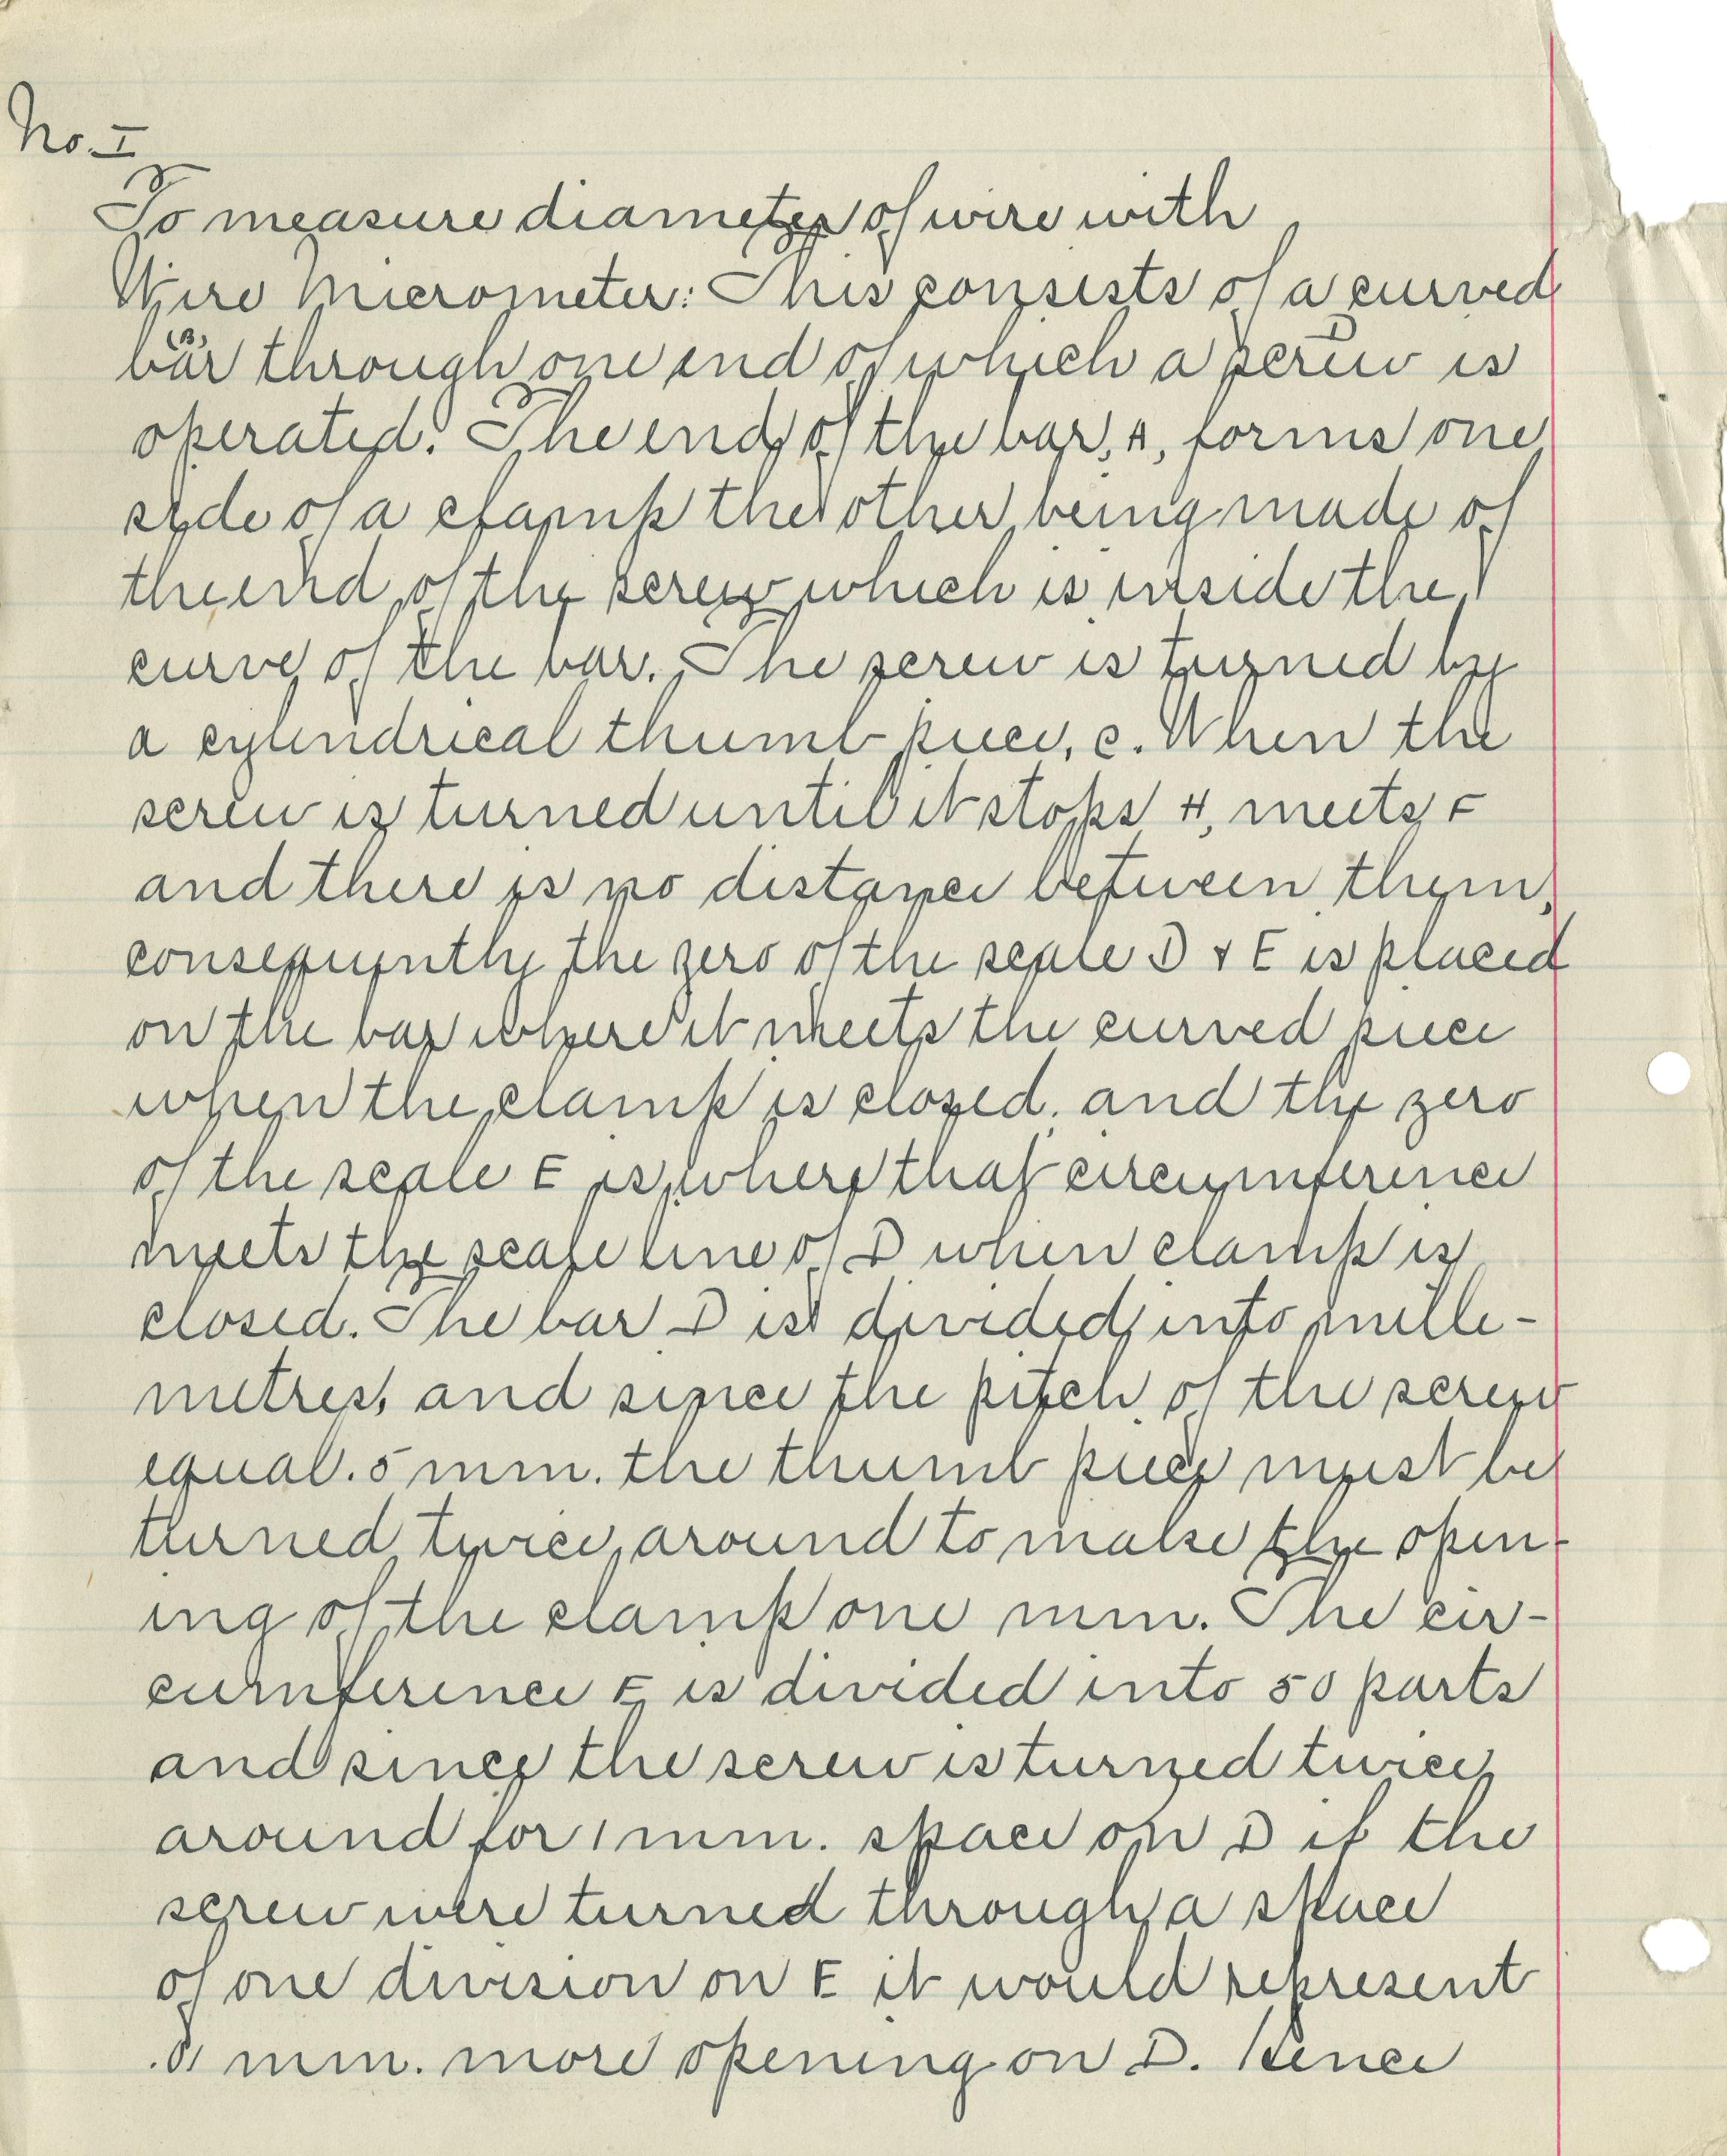 No. I
To measure diameter of wire with
Wire Micrometer: This consists of a curved
bar "B" through one end of which a screw D is
operated. The end of the bar, A, forms one
side of a clamp the other being made of
the end of the screw which is inside the
curve of the bar. The screw is turned by
a cylindrical thumb piece, C. When the
screw is turned until it stops A, meets F
and there is no distance between them,
consequently the zero of the scale D & E is placed
on the bar where it meets the curved piece
when the clamp is closed. and the zero
of the scale E is where that circumference
meets the scale line of D when clamp is
closed. The bar D is divided into mille-
metres, and since the pitch of the screw
equal .5 mm. the thumb piece must be
turned twice around to make the open-
ing of the clamp one mm. The cir-
cumference E is divided into 50 parts
and since the screw is turned twice
around for 1 mm. space on D if the
screw were turned through a space
of one division on E it would represent
.01 mm. more opening on D. Hence